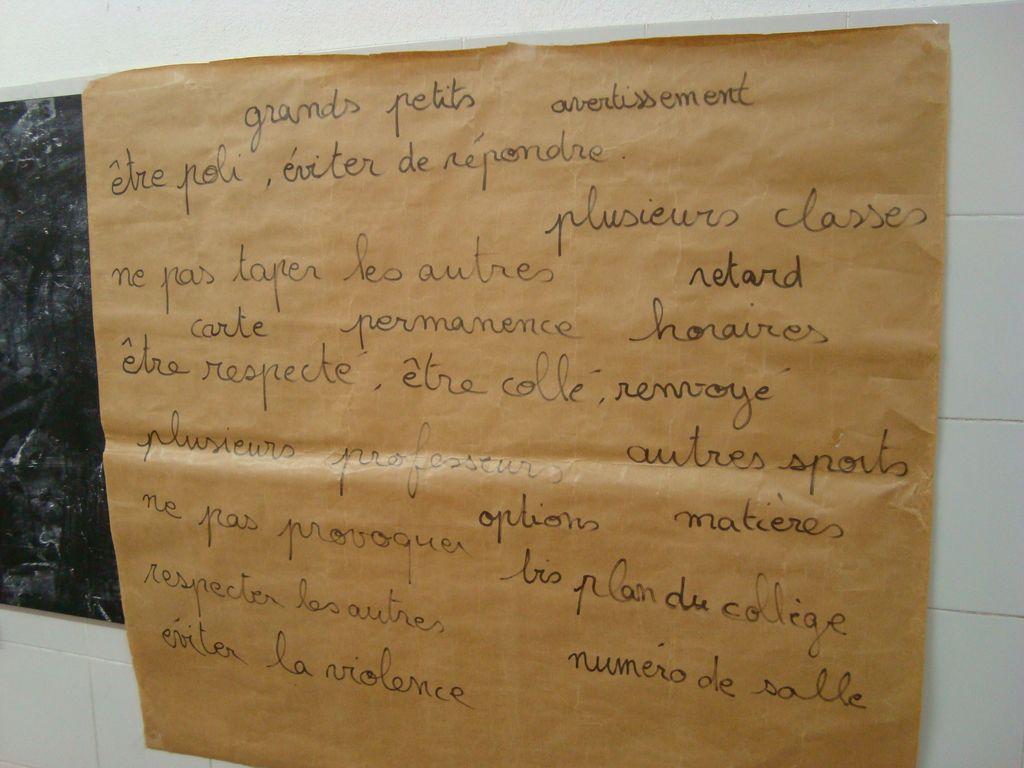 grands petits avertissement
être poli, éviter de répondre.
plusieurs classes
ne pas taper les autres retard
carte permanence horaires
être respecté, être collé, renvoyé
plusieurs professeurs autres sports
ne pas provoquer options matières
bis plan du collège
respecter les autres
éviter la violence numéro de salle